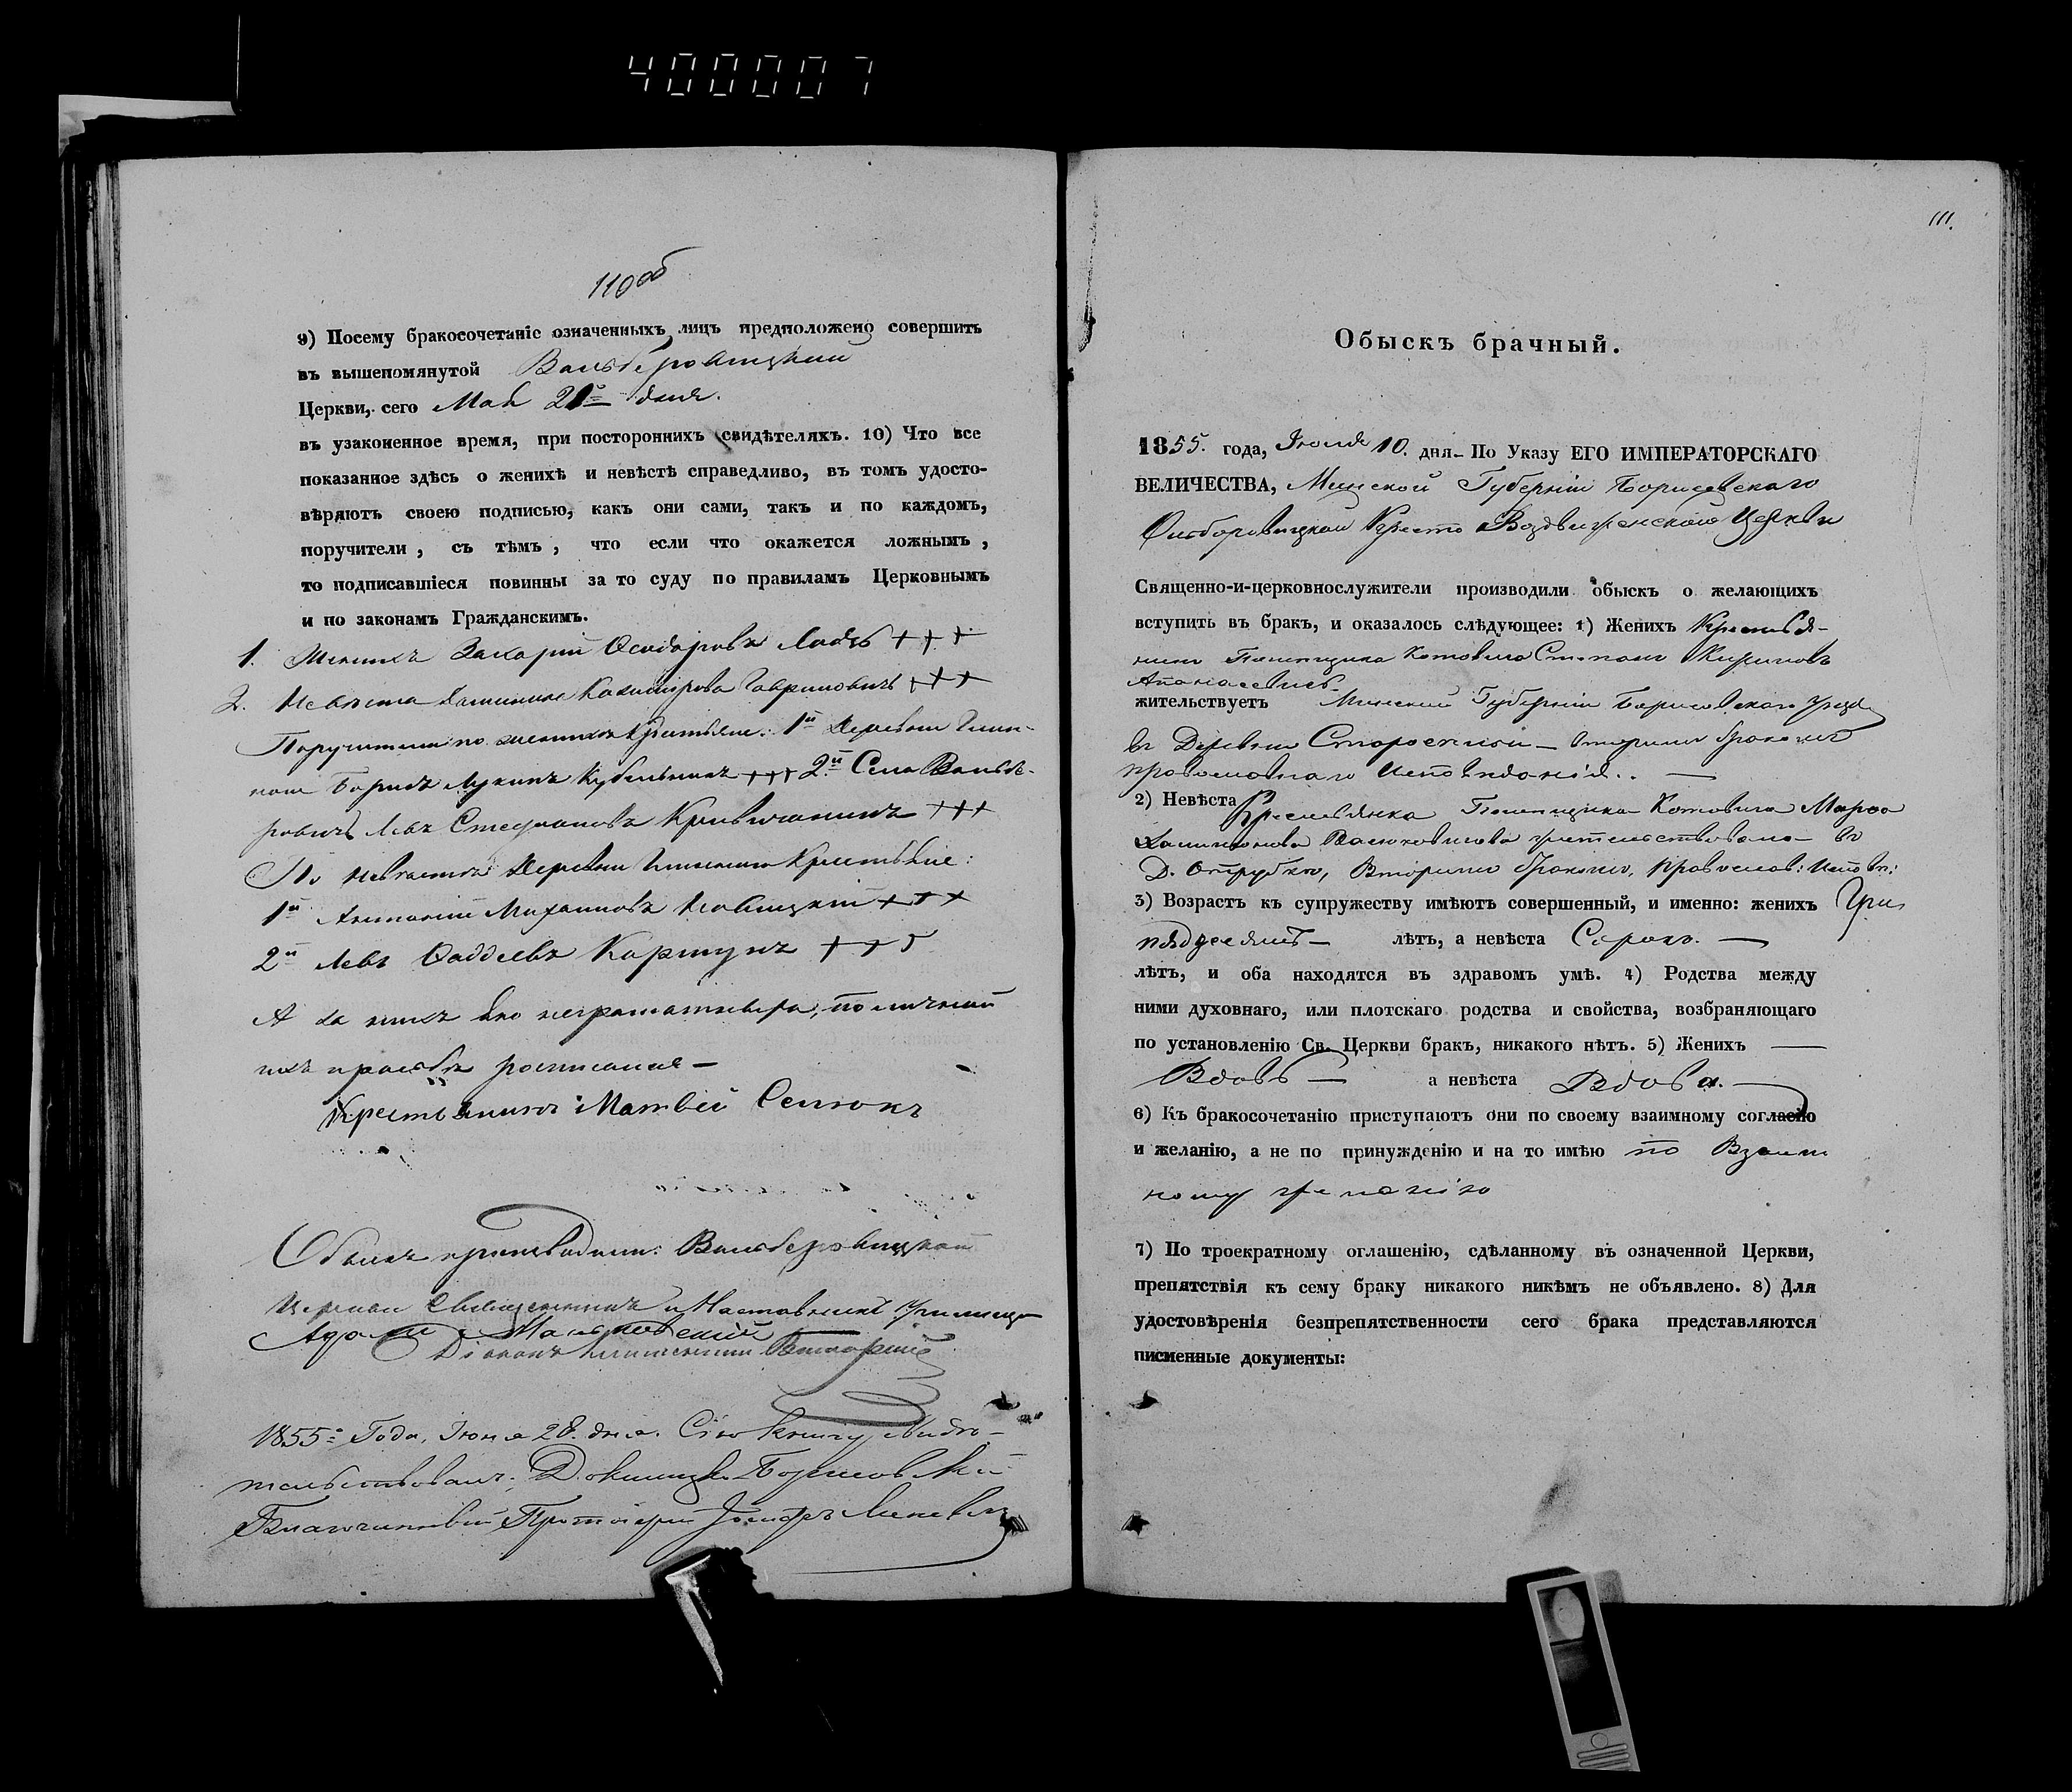 400007
110 об
9) Посему бракосочетаніе означенныхъ лицъ предположено совершить
въ вышепомянутой Вольберовицкой
Церкви, сего Мая 21го дня.
въ узаконенное время, при постороннихъ свидѣтеляхъ. 10) Что все
показанное здѣсь о женихѣ и невѣстѣ справедливо, въ томъ удосто-
вѣряютъ своею подписью, какъ они сами, такъ и по каждомъ,
поручители, съ тѣмъ, что если что окажется ложнымъ,
то подписавшіеся повинны за то суду по правиламъ Церковнымъ
и по законамъ Гражданскимъ.
1. Женихъ Захарій Ѳеодоровъ +++
2. Невѣста Казимірова Гавриловичъ +++
Поручители по женихѣ Крестьяне: 1й Деревни
Борисъ Лукинъ +++ 2й Села Вольбе-
ровичъ Левъ Стефановъ +++
По невѣстѣ Деревни Крестьяне:
1й Антоній Михайловъ +++
2й Левъ Ѳаддеевъ Коршунъ +++
А за нихъ яко неграматныхъ, по личной
ихъ просьбѣ росписался
Крестьянинъ Матвей Селюкъ
Обыскъ производили: Вольберовицкой
Церкви Священникъ и Наставникъ училища
Адамъ
Діаконъ
1855го Года, Іюня 28 дня. Сію книгу свидѣ-
тельствовалъ: Докшицко Борисовскій
Благочинный Протоіерей Іосифъ
111.
Обыскъ брачный.
1855. года, Іюля 10. дня По Указу ЕГО ИМПЕРАТОРСКАГО
ВЕЛИЧЕСТВА, Минской Губерніи Борисовскаго
Кресто Воздвиженской Церкви
Священно-и-церковнослужители производили обыскъ о желающихъ
вступить въ бракъ, и оказалось слѣдующее: 1) Женихъ Крестья-
нинъ Помещика Котовича Степанъ
жительствуетъ Минской Губерніи Борисовскаго уѣзда
въ Деревни вторымъ бракомъ
православнаго Исповѣданія.
2) Невѣста Крестьянка Помещика Котовича Марѳа
жительствовала въ
Д. Отрубкъ, Вторымъ бракомъ, православ: Исповѣ:
3) Возрастъ къ супружеству имѣютъ совершенный, и именно: женихъ
лѣтъ, а невѣста Сорокъ.
лѣтъ, и оба находятся въ здравомъ умѣ. 4) Родства между
ними духовнаго, или плотскаго родства и свойства, возбраняющаго
по установленію Св. Церкви бракъ, никакого нѣтъ. 5) Женихъ
Вдовъ а невѣста Вдова.
6) Къ бракосочетанію приступаютъ они по своему взаимному согласію
и желанію, а не по принужденію и на то имѣю по Взаим
ному желанію
7) По троекратному оглашенію, сдѣланному въ означенной Церкви,
препятствія къ сему браку никакого никѣмъ не объявлено. 8) Для
удостовѣренія безпрепятственности сего брака представляются
писменные документы: